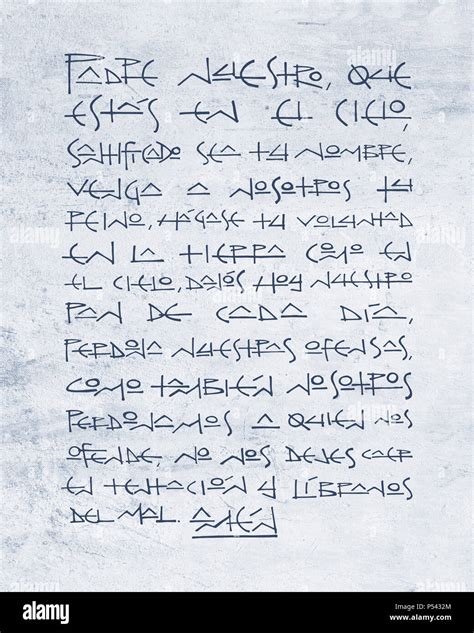 PADRE NUESTRO, QUE
ESTÁS EN EL CIELO,
SANTIFICADO SEA TU NOMBRE,
VENGA A NOSOTROS TU
REINO, HÁGASE TU VOLUNTAD
EN LA TIERRA COMO EN
EL CIELO, DANOS HOY NUESTRO
PAN DE CADA DÍA,
PERDONA NUESTRAS OFENSAS,
COMO TAMBIÉN NOSOTROS
PERDONAMOS A QUIEN NOS
OFENDE, NO NOS DEJES CAER
EN TENTACIÓN Y LÍBRANOS
DEL MAL. AMÉN
alamy
Image ID: P5432M
www.alamy.com